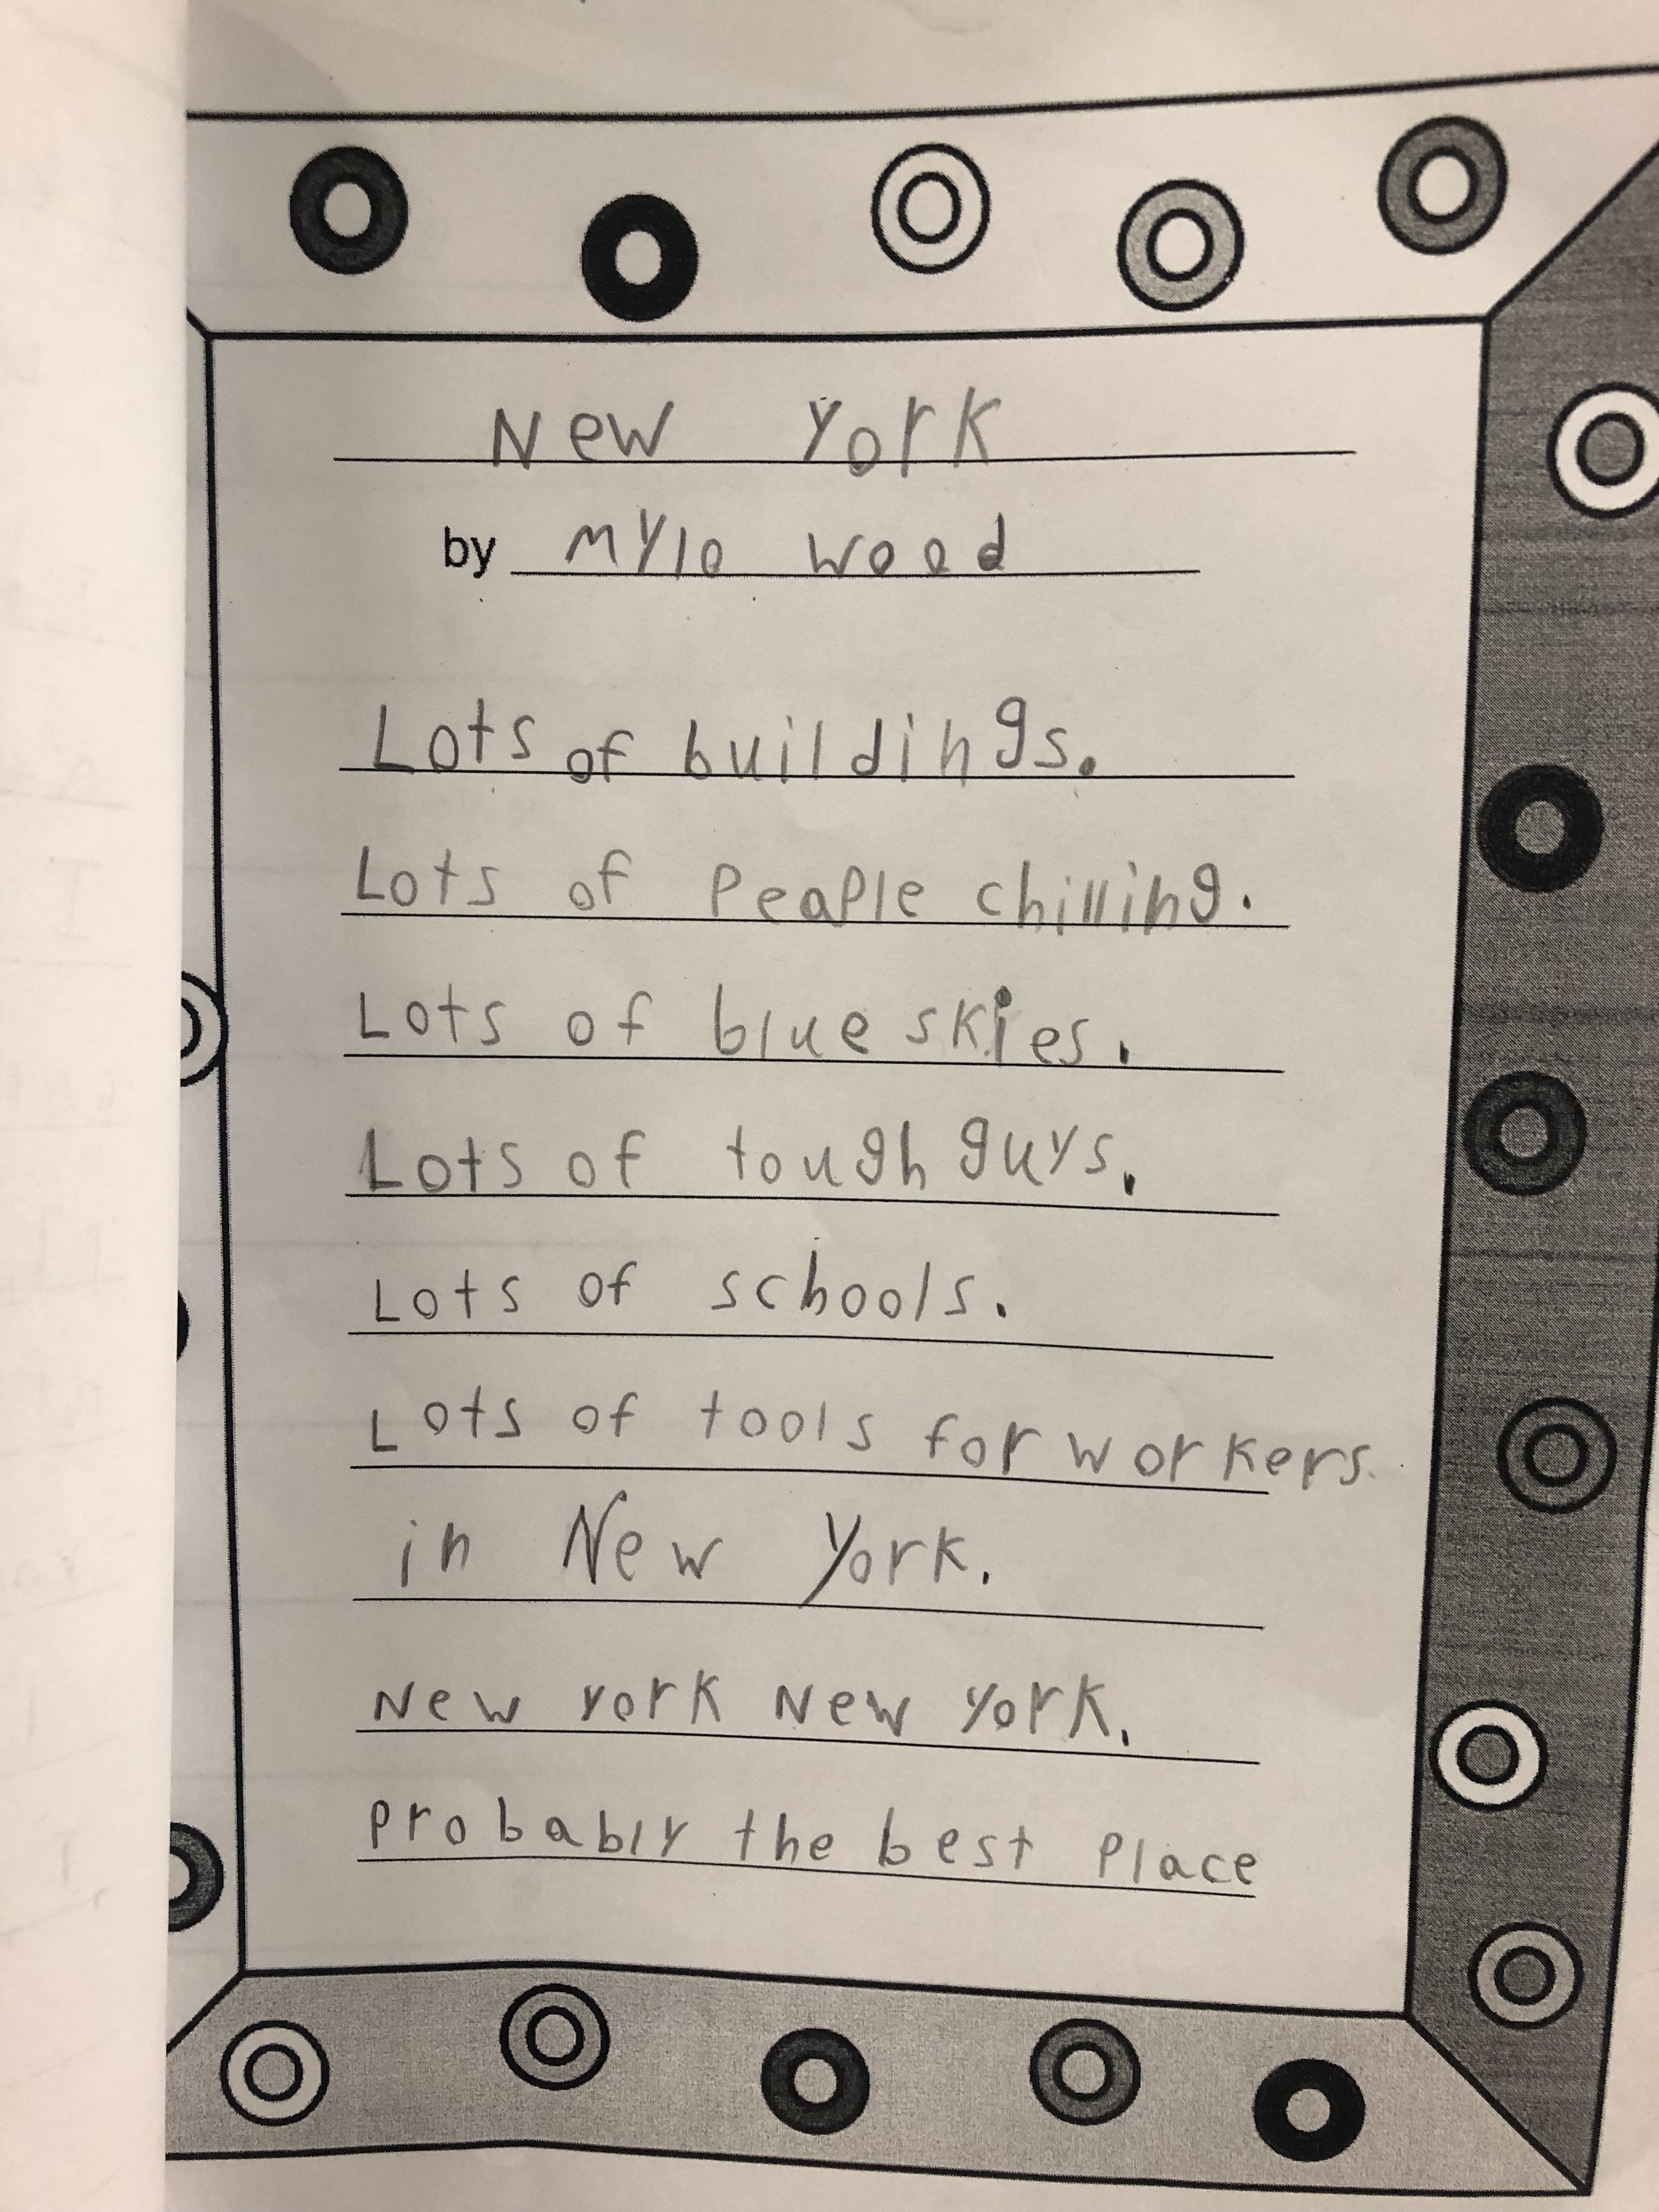 New York
by Mylo Wood
Lots of buildings.
Lots of Peaple chilling.
Lots of blue skies.
Lots of tough guys.
Lots of schools.
Lots of tools for workers.
in New York.
New York New York.
Probably the best Place